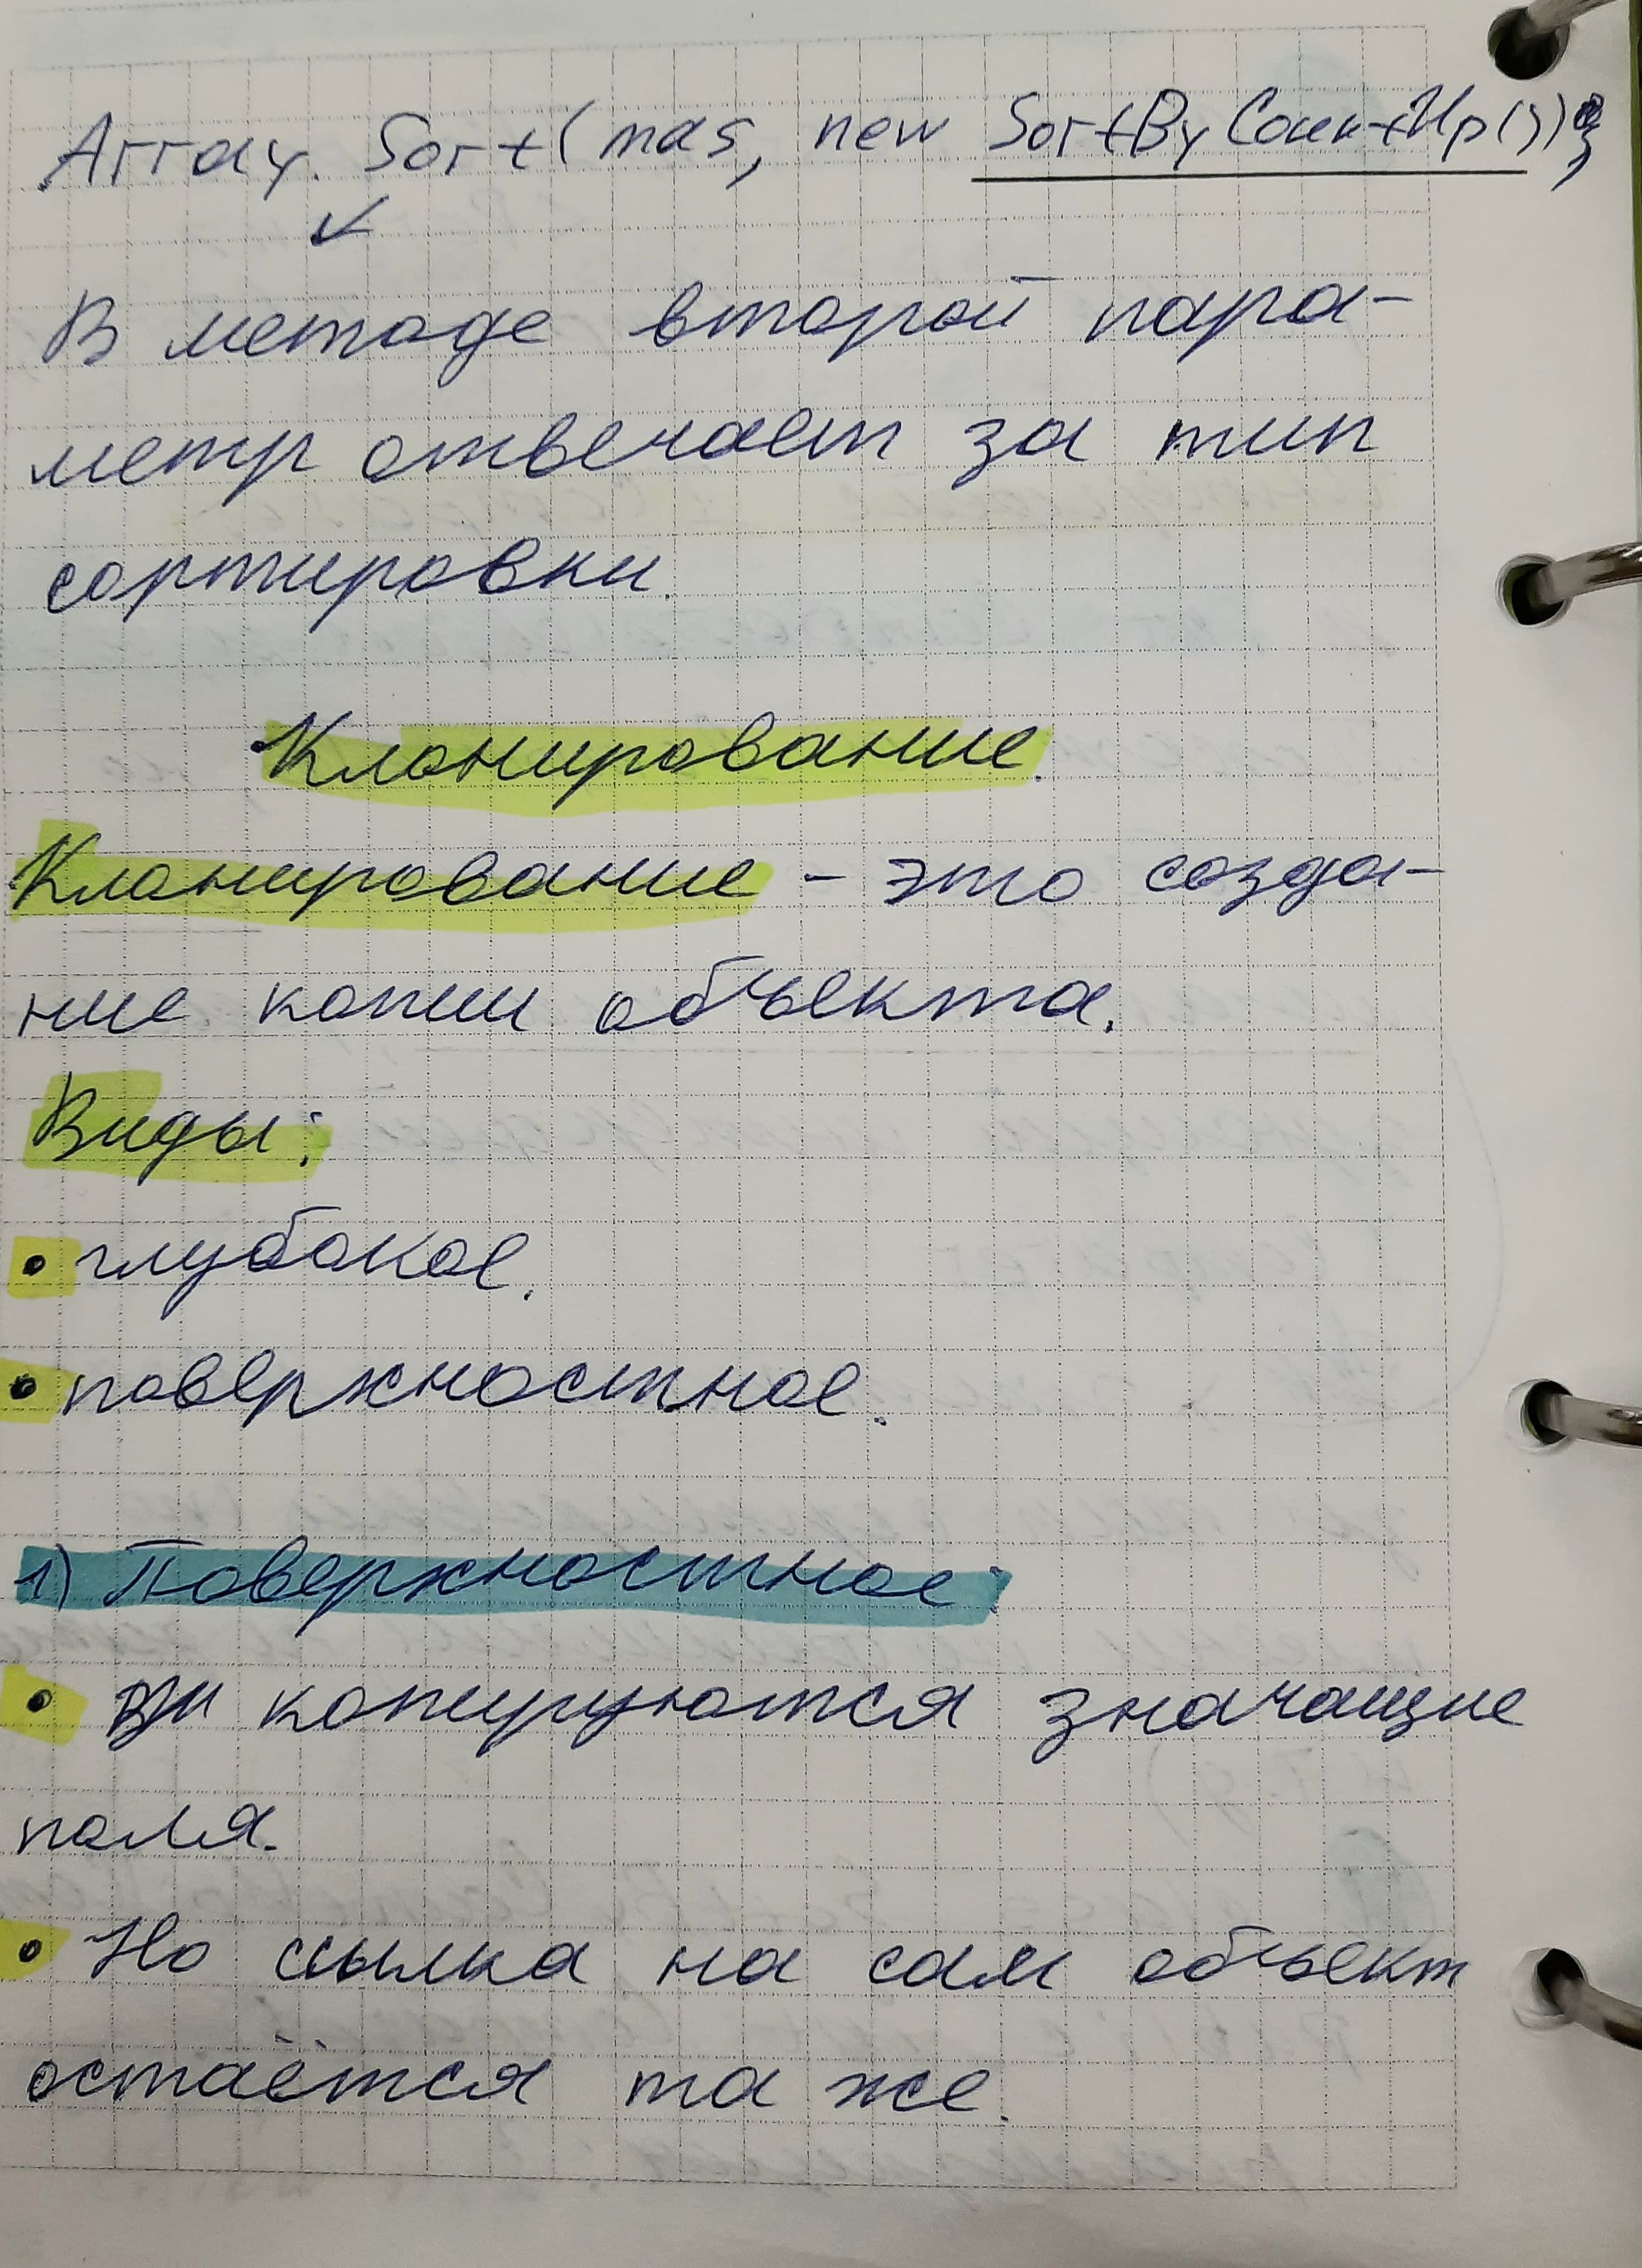 Array.Sort(mas, new SortByCountUp());
В методе второй пара-
метр отвечает за тип
сортировки.
Клонирование.
Клонирование - это созда-
ние копии объекта.
Виды:
• глубокое.
• поверхностное.
1) Поверхностное:
• копируются значащие
поля.
• Но ссылка на сам объект
остаётся та же.